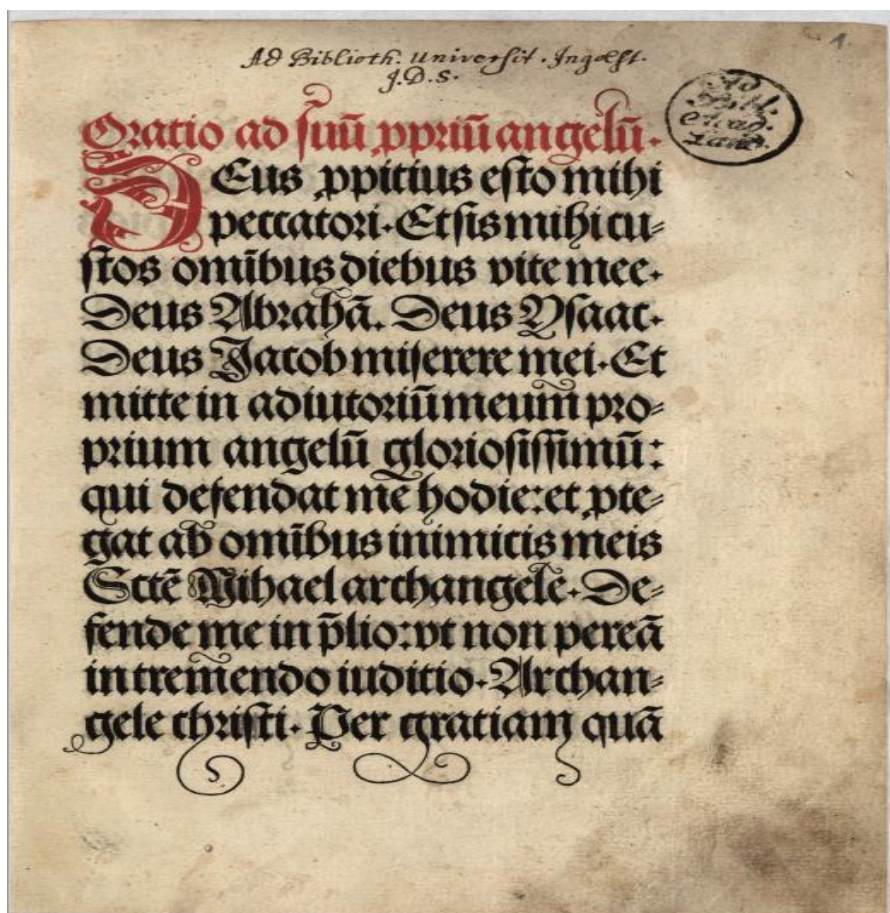 Ad Biblioth. Universit. Ingolst.
J.D.S.
1.
Ad
Bibl.
Acad.
Land.
Oratio ad suū ꝓpriū angelū.
DEus ꝓpitius esto mihi
peccatori. Et sis mihi cu=
stos omībus diebus vite mee.
Deus Abrahā. Deus Ysaac.
Deus Jacob miserere mei. Et
mitte in adiutoriū meum̄ pro=
prium angelū gloriosissimū:
qui defendat me hodie: et ꝓte=
gat ab omībus inimicis meis
Sctē Mihael archangele. De=
fende me in p̄lio: vt non pereā
in tremendo iuditio. Archan=
gele christi. Per gratiam quā